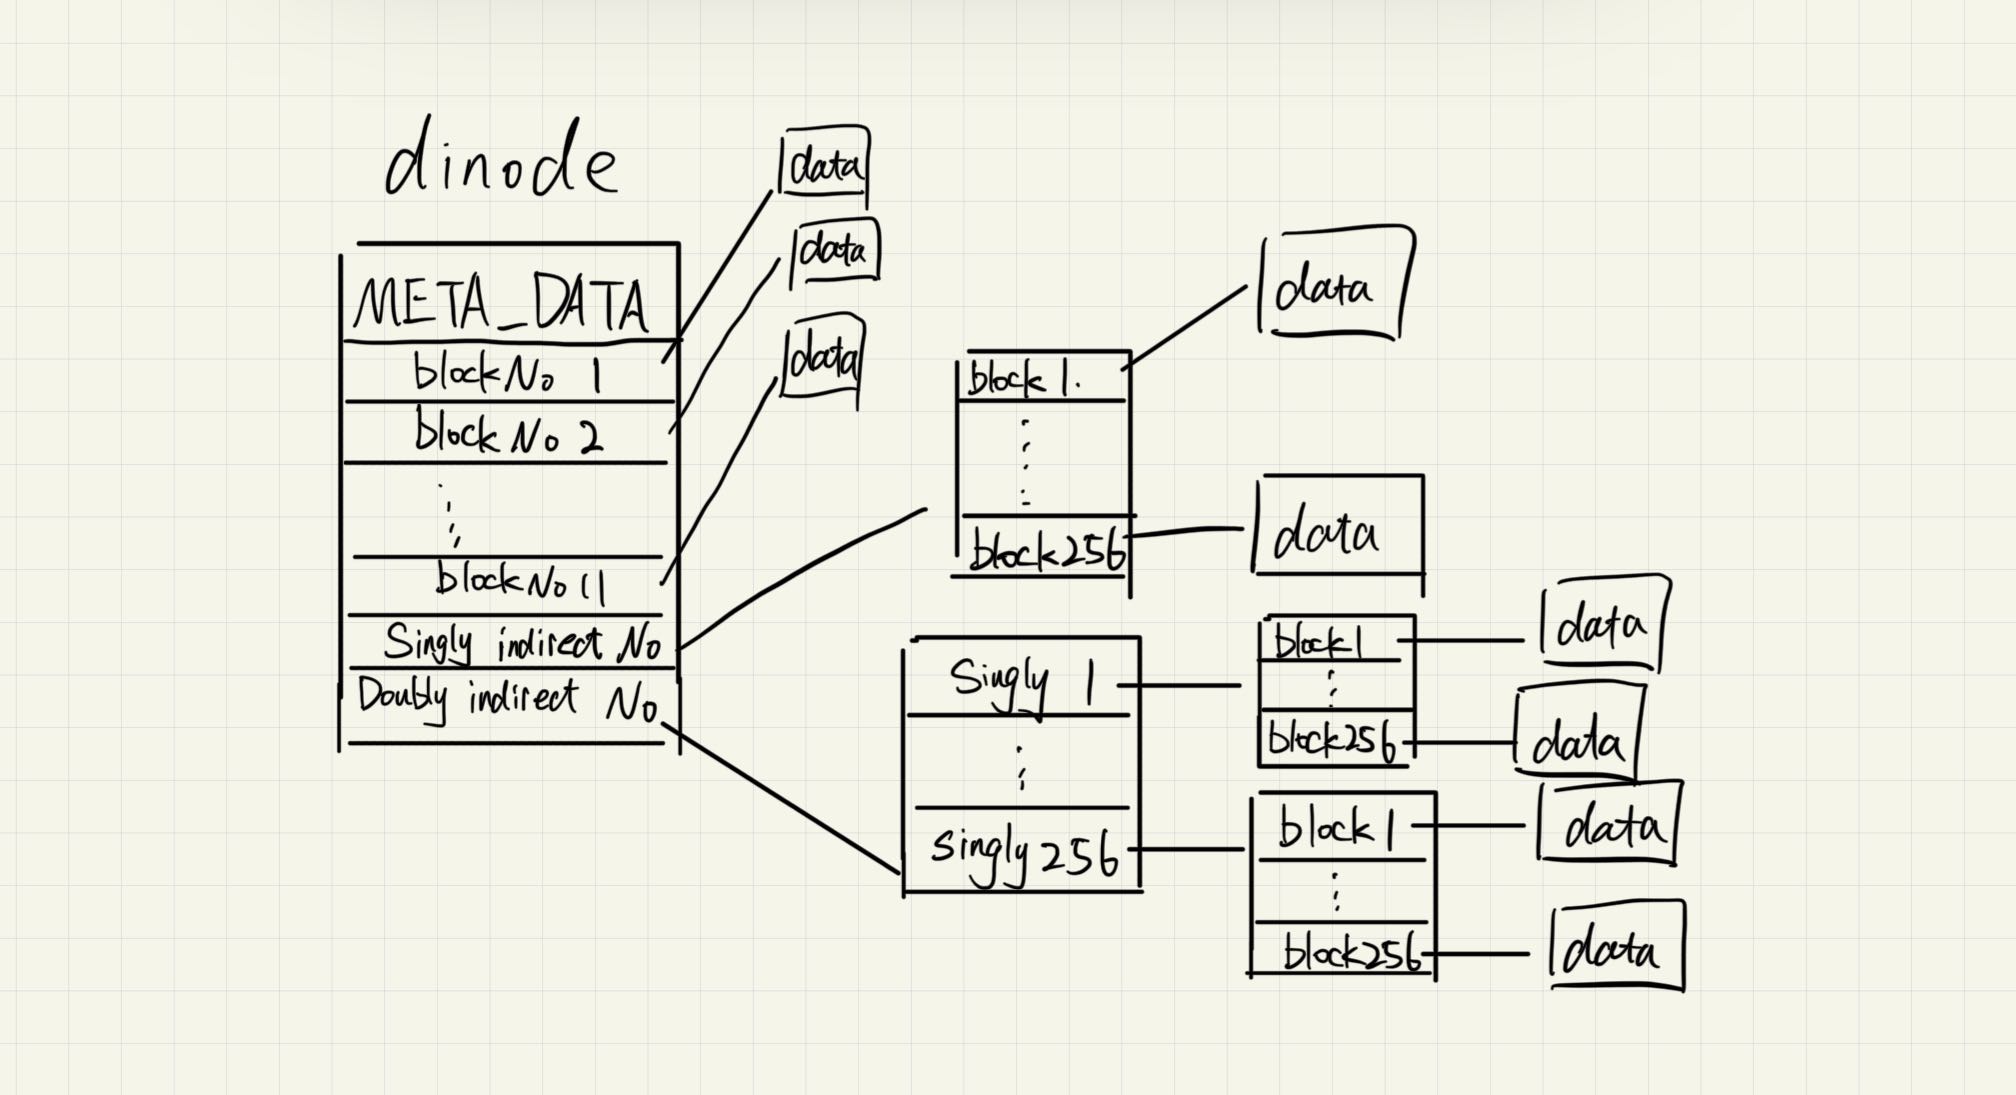 dinode
META_DATA
block No 1
block No 2
block No 11
Singly indirect No
Doubly indirect No
data
data
data
block 1.
block256
data
data
Singly 1
Singly 256
block1
block256
data
data
block1
block256
data
data